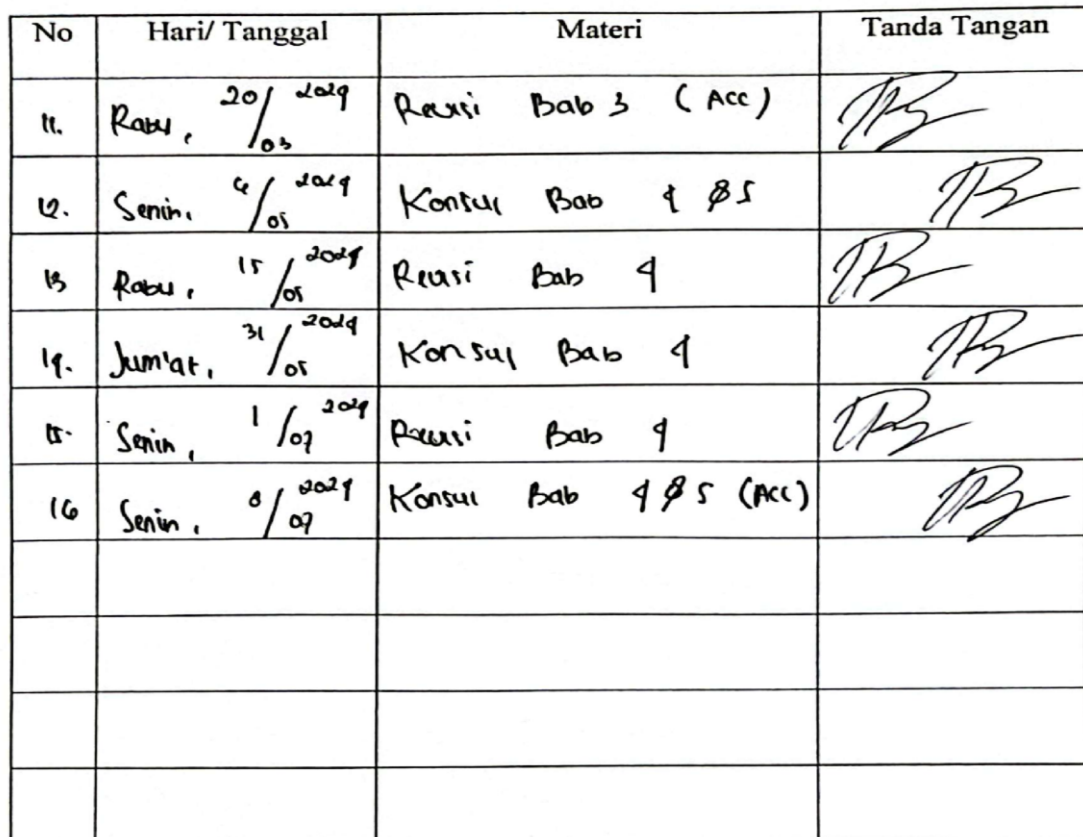 No Hari/ Tanggal Materi Tanda Tangan
11. Rabu, 20/03 2024 Revisi Bab 3 (ACC)
12. Senin, 6/05 2024 Konsul Bab 4 & 5
13 Rabu, 15/05 2024 Revisi Bab 4
14. Jum'at, 31/05 2024 Konsul Bab 4
15. Senin, 1/07 2024 Revisi Bab 4
16 Senin, 8/07 2024 Konsul Bab 4 & 5 (ACC)